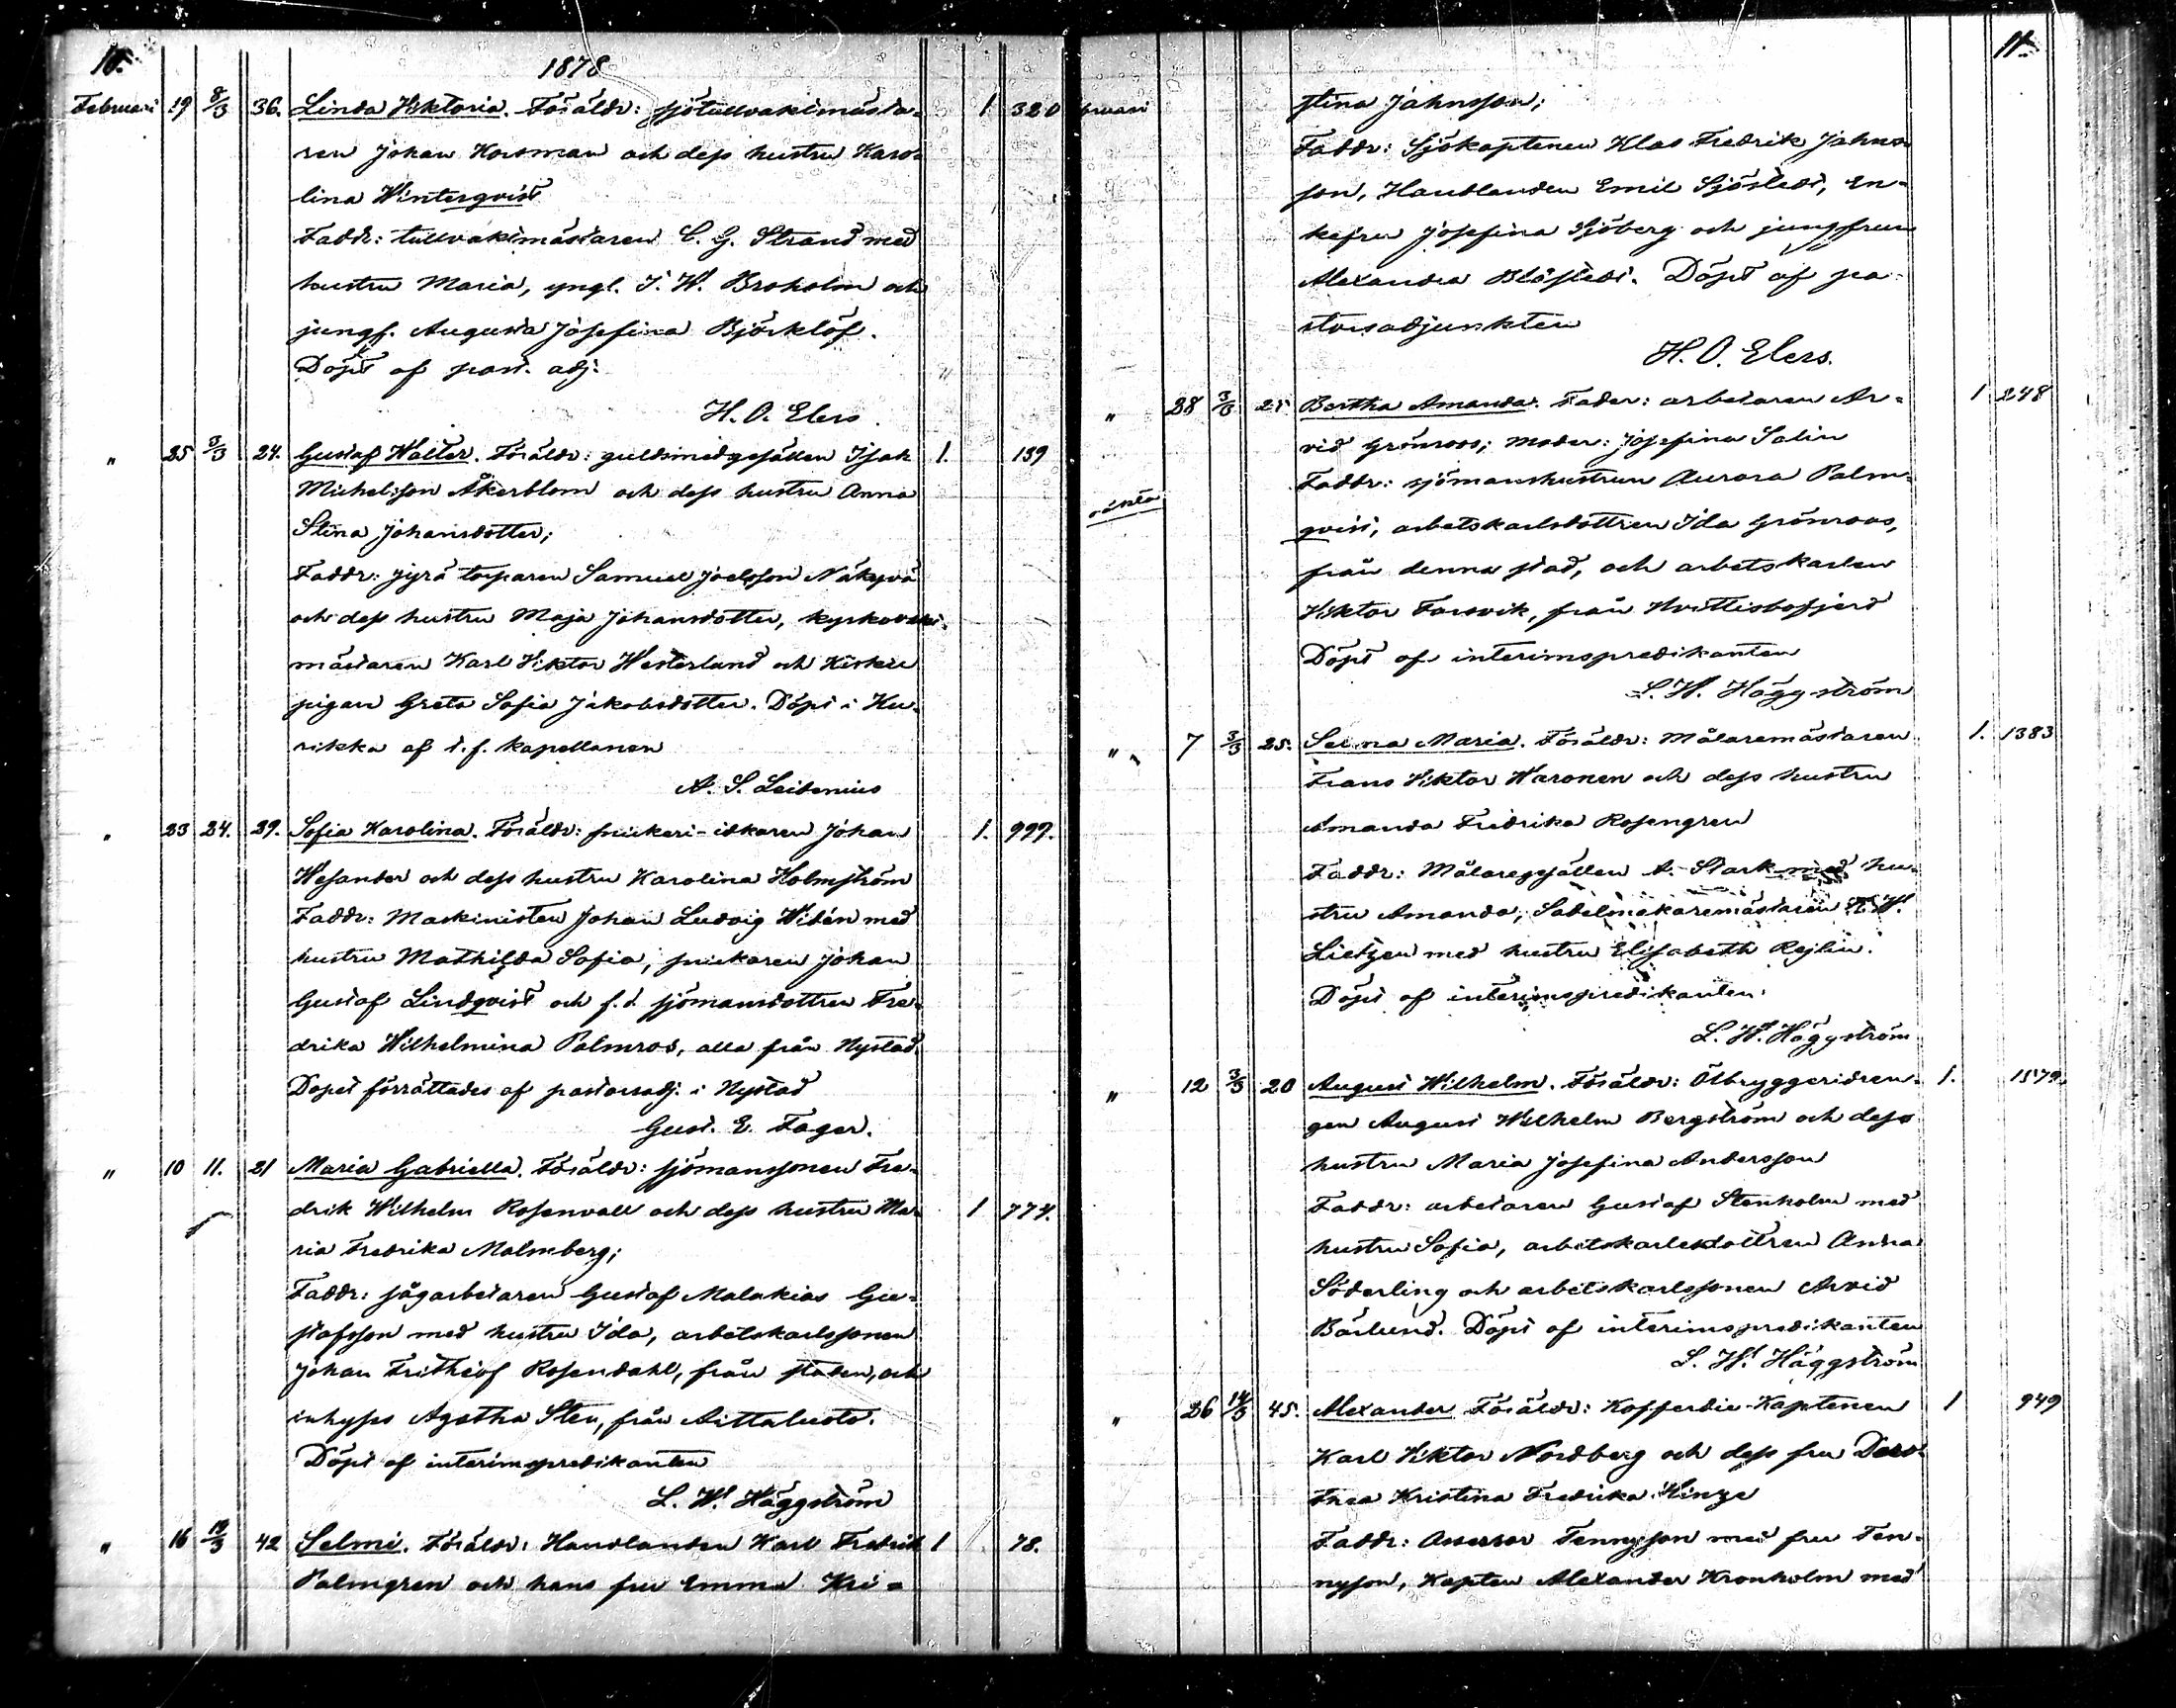 10.
1878
Februari 19 8/3 36. Linda Viktoria. Föräldr: sjötullvaktmästa- 1 320
ren Johan Korsman och dess hustru Karo-
lina Winterqvist
Faddr: tullvaktmästaren C. G. Strand med
hustru Maria, yngl. J. W. Broholm och
jungf. Augusta Josefina Björklöf.
Döpt af past. adj.
H. O. Elers.
" 25 3/3 24. Gustaf Walter. Föräldr: guldsmedgesällen Isak 1. 139
Michelsson Åkerblom och dess hustru Anna
Stina Johansdotter;
Faddr: Jyrä torparen Samuel Joelsson Näkyvä
och dess hustru Maja Johansdotter, kyrkovakt-
mästaren Karl Viktor Westerlund och
pigan Greta Sofia Jakobsdotter. Döpt i Ku-
rikka af t. f. kapellanen
A. S. Leidenius
" 23 24. 29. Sofia Karolina. Föräldr: snickeri-idkaren Johan 1. 999.
Wesander och dess hustru Karolina Holmström
Faddr: Maskinisten Johan Ludvig Widén med
hustru Mathilda Sofia, snickaren Johan
Gustaf Lindqvist och f. d. sjömansdottren Fre-
drika Wilhelmina Palmros, alla från Nystad.
Dopet förrättades af pastorsadj. i Nystad
Gust. E. Fager.
" 10 11. 21 Maria Gabriella. Föräldr: sjömanssonen Fre-
drik Wilhelm Rosenvall och dess hustru Ma- 1 774.
ria Fredrika Malmberg;
Faddr: sågarbetaren Gustaf Malakias Gu-
stafsson med hustru Ida, arbetskarlssonen
Johan Frithiof Rosendahl, från staden, och
inhyses Agatha Sten, från Aittaluoto.
Döpt af interimspredikanten
L. W. Häggström
" 16 19/3 42 Selmi. Föräldr: Handlanden Karl Fredrik 1 78.
Palmgren och hans fru Emma Kri-
11.
bruari stina Jahnsson;
Faddr: Sjökaptenen Klas Fredrik Jahns-
son, Handlanden Emil Sjöstedt, En-
kefru Josefina Sjöberg och jungfrun
Alexandra Blåfjeldt. Döpt af pa-
storsadjunkten
H. O. Elers.
" 28 3/3 25 Bertha Amanda. Fader: arbetaren Ar- 1 248
vid Grönroos; moder: Josefina Salin
Faddr: sjömanshustrun Aurora Palm-
oäkta qvist, arbetskarlsdottren Ida Grönroos,
från denna stad, och arbetskarlen
Viktor Forsvik, från Hvittisbofjerd
Döpt af interimspredikanten
L. W. Häggström
" 7 3/3 25. Selma Maria. Föräldr: Målaremästaren 1. 1383
Frans Viktor Waronen och dess hustru
Amanda Fredrika Rosengren
Faddr: Målaregesällen A. Stark med hu-
stru Amanda, Sadelmakaremästaren W.
Lietzen med hustru Elisabeth Rejlin.
Döpt af interimspredikanten
L. W. Häggström
" 12 3/3 20 August Wilhelm. Föräldr: Ölbryggeridren- 1. 1579.
gen August Wilhelm Bergström och dess
hustru Maria Josefina Andersson
Faddr: arbetaren Gustaf Stenholm med
hustru Sofia, arbetskarlsdottren Anna
Söderling och arbetskarlssonen Arvid
Bärlund. Döpt af interimspredikanten
L. W. Häggström
" 26 14/3 45. Alexander Föräldr: Kofferdie-Kaptenen 1 949
Karl Viktor Nordberg och dess fru Doro-
thea Kristina Fredrika Hinze
Faddr: Assessor Tennyson med fru Ten-
nyson, Kapten Alexander Kronholm med